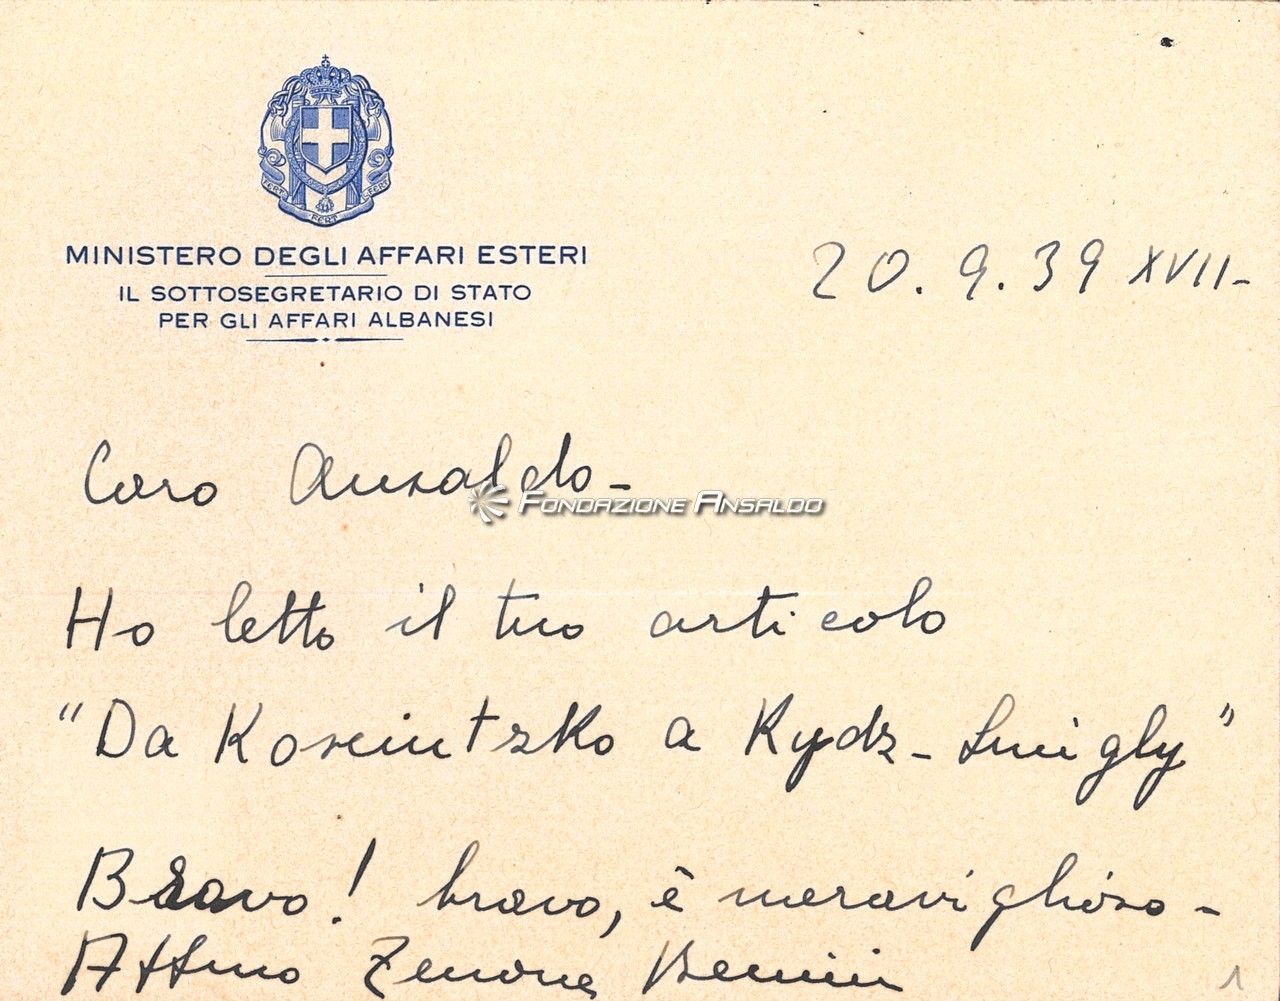 FERT FERT FERT
MINISTERO DEGLI AFFARI ESTERI
IL SOTTOSEGRETARIO DI STATO
PER GLI AFFARI ALBANESI
20.9.39 XVII-
Caro Ansaldo-
FONDAZIONE ANSALDO
Ho letto il tuo articolo
"Da Kosciutzko a Rydz-Smigly"
Bravo! bravo, è meraviglioso-
Aff.mo Zenone Benini
1